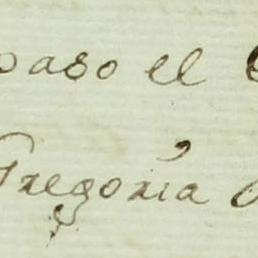 paso el
Gregoria